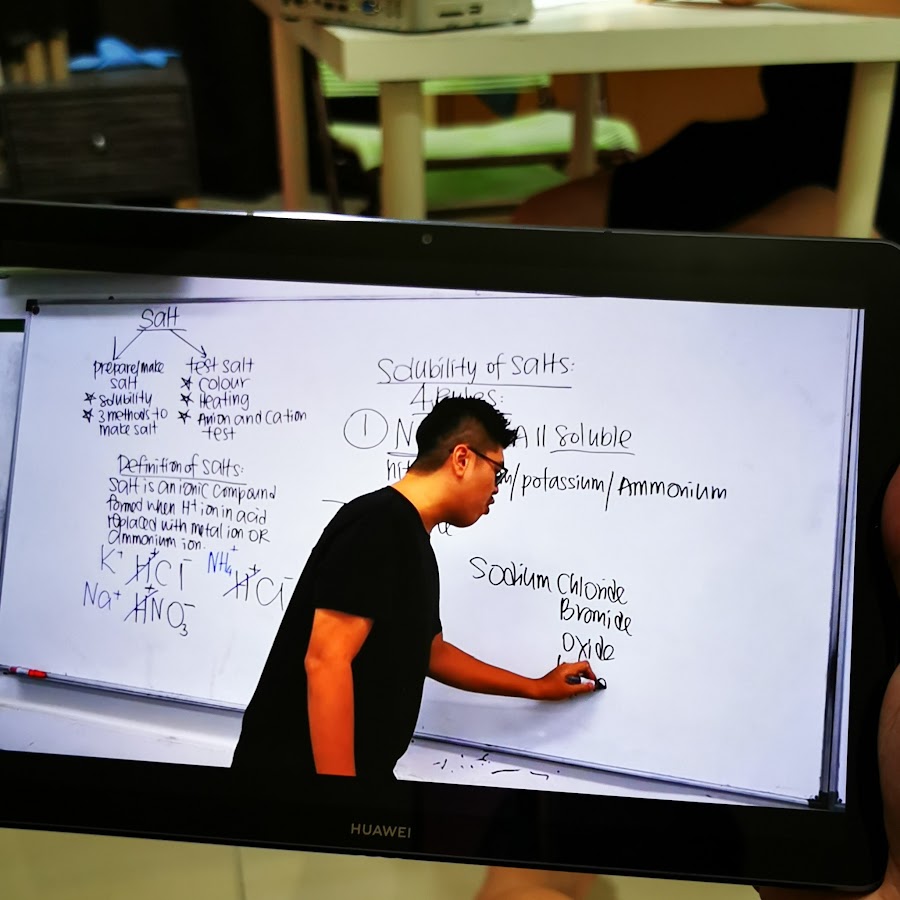 Salt
prepare/make
salt
☆ solubility
☆ 3 methods to
make salt
test salt
☆ colour
☆ Heating
☆ Anion and cation
test
Definition of salts:
Salt is an ionic compound
formed when H⁺ ion in acid
replaced with metal ion OR
ammonium ion.
K⁺ H⁺Cl⁻ NH₄⁺ H⁺Cl⁻
Na⁺ H⁺NO₃⁻
Solubility of Salts:
4 Rules:
① All soluble
/potassium/Ammonium
Sodium Chloride
Bromide
Oxide
HUAWEI